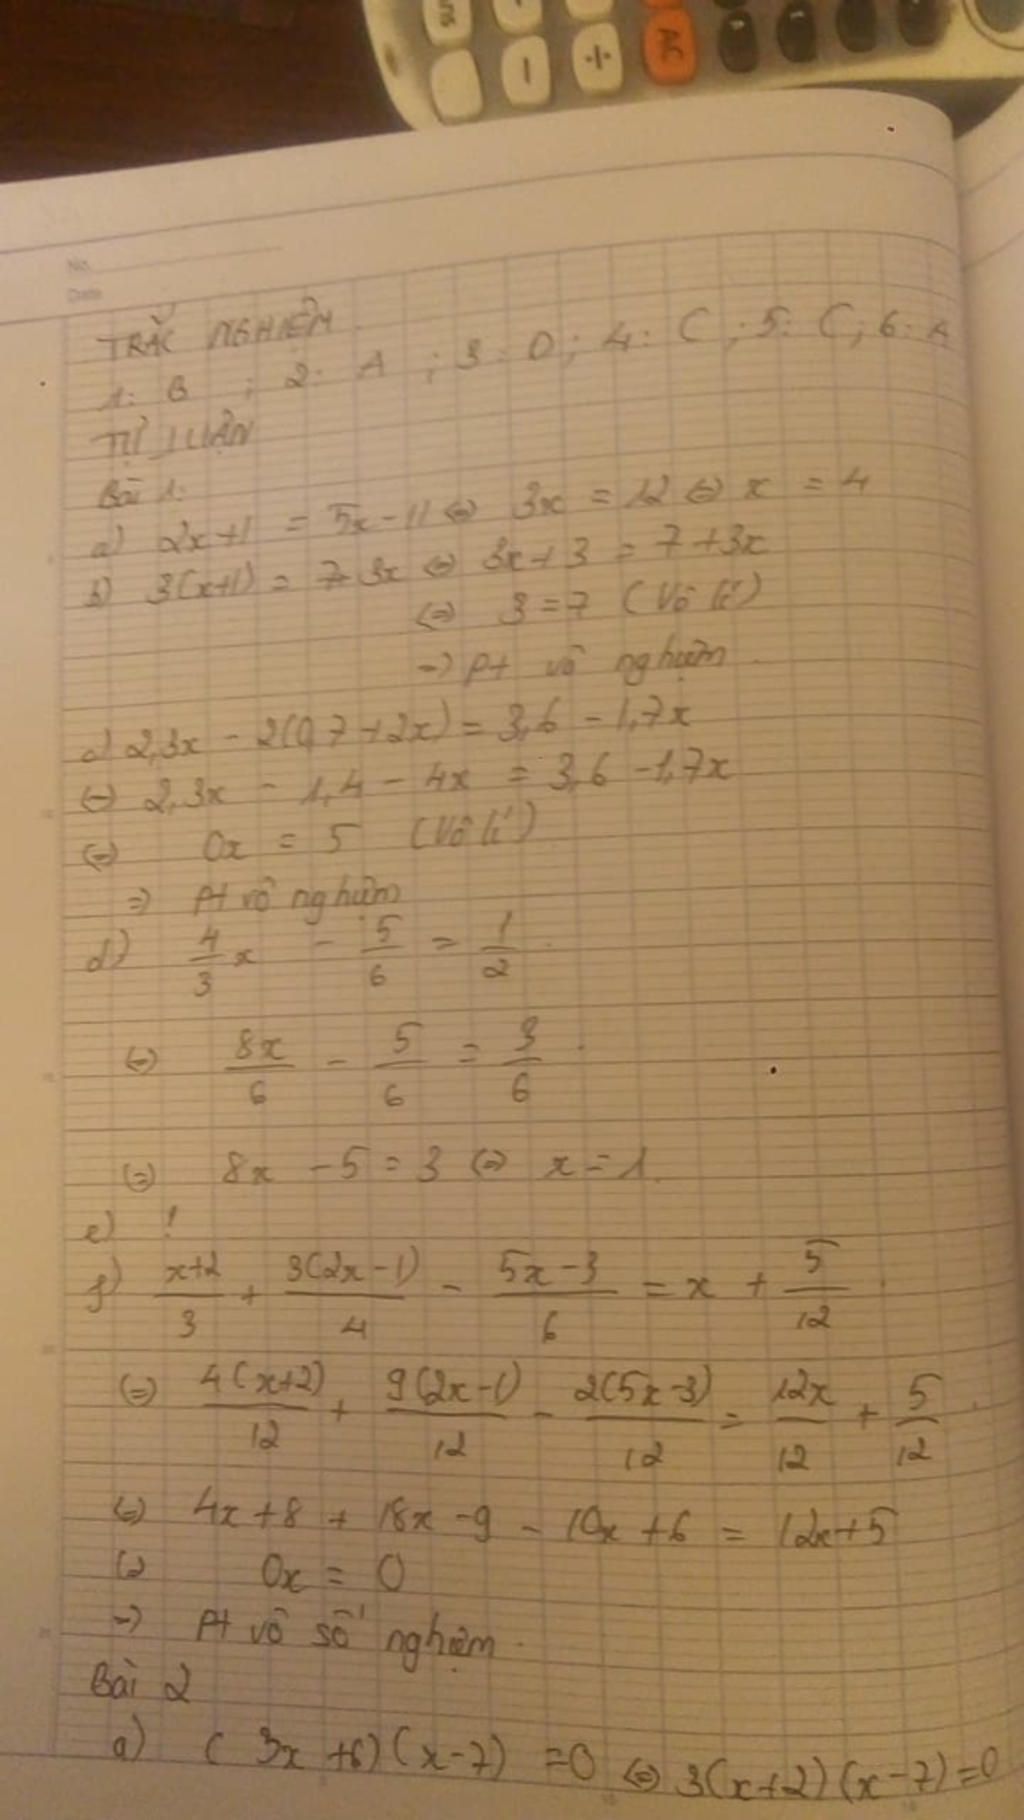 AC
No.
Date
TRẮC NGHIỆM
1: B ; 2: A ; 3: D ; 4: C ; 5: C ; 6: A
TỰ LUẬN
Bài 1:
a) 2x+1 = 5x-11 ⇔ 3x = 12 ⇔ x = 4
b) 3(x+1) = 7+3x ⇔ 3x+3 = 7+3x
⇔ 3=7 (Vô lí)
=> Pt vô nghiệm
c) 2,3x - 2(0,7+2x) = 3,6 - 1,7x
⇔ 2,3x - 1,4 - 4x = 3,6 - 1,7x
⇔ 0x = 5 (Vô lí)
=> Pt vô nghiệm
d) 4/3 x - 5/6 = 1/2
⇔ 8x/6 - 5/6 = 3/6
⇔ 8x - 5 = 3 ⇔ x = 1
e) !
f) x+2/3 + 3(2x-1)/4 - 5x-3/6 = x + 5/12
⇔ 4(x+2)/12 + 9(2x-1)/12 - 2(5x-3)/12 = 12x/12 + 5/12
⇔ 4x+8 + 18x-9 - 10x+6 = 12x+5
⇔ 0x = 0
=> Pt vô số nghiệm.
Bài 2
a) (3x+6)(x-7) = 0 ⇔ 3(x+2)(x-7)=0